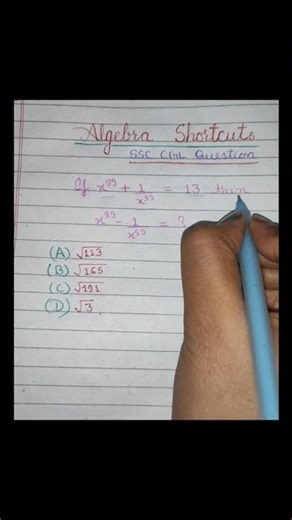 Algebra Shortcuts
SSC CGL Question
If x⁹⁹ + 1/x⁹⁹ = 13 then
x⁹⁹ - 1/x⁹⁹ = ?
(A) √113
(B) √165
(C) √191
(D) √3